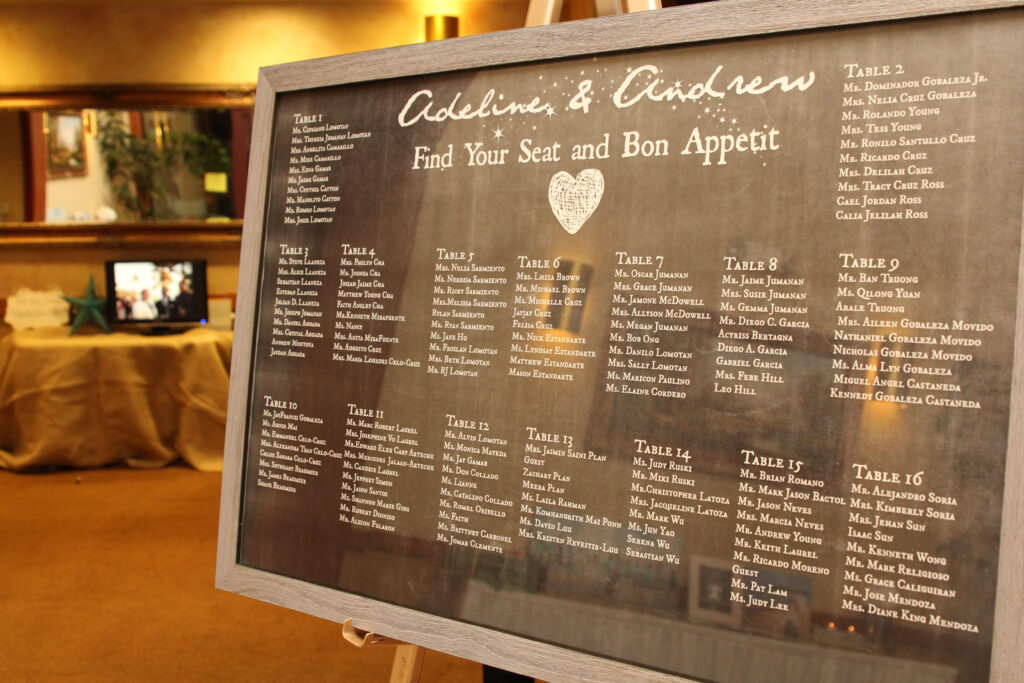 Adeline & Andrew
Find Your Seat and Bon Appetit
Table 1
Mr. Cipriano Lomotan
Mrs. Theresa Jumanan Lomotan
Mrs. Angelita Camarillo
Ms. Miss Camarillo
Mrs. Edna Gamab
Mr. Jaime Gamab
Mrs. Cynthia Cayton
Mr. Manolito Cayton
Mr. Romeo Lomotan
Mrs. Josie Lomotan
Table 2
Mr. Dominador Gobaleza Jr.
Mrs. Nelia Cruz Gobaleza
Mr. Rolando Young
Mrs. Tess Young
Mr. Ronilo Santullo Cruz
Mr. Ricardo Cruz
Mrs. Delilah Cruz
Mrs. Tracy Cruz Ross
Carl Jordan Ross
Calia Jelilah Ross
Table 3
Mr. Steve Llaneza
Mrs. Alice Llaneza
Sebastian Llaneza
Esteban Llaneza
Julian D. Llaneza
Mr. Joseph Jumanan
Mr. Daniel Aguada
Mrs. Crystal Aguada
Andrew Montoya
Jaydan Aguada
Table 4
Ms. Paulyn Cha
Mr. Joshua Cha
Josiah Jaime Cha
Matthew Young Cha
Faith Ansley Cha
Mr. Kenneth Mirafuente
Ms. Nancy
Mrs. Anita Mirafuente
Mr. Augusto Cruz
Mrs. Maria Lourdes Celo-Cruz
Table 5
Mrs. Nelia Sarmiento
Ms. Nerissa Sarmiento
Mr. Ricky Sarmiento
Mrs. Melissa Sarmiento
Rylan Sarmiento
Mr. Ryan Sarmiento
Ms. Jane Ho
Mr. Froilan Lomotan
Mrs. Beth Lomotan
Mr. RJ Lomotan
Table 6
Mrs. Lheza Brown
Mr. Michael Brown
Ms. Michelle Cruz
Jayjay Cruz
Felixia Cruz
Mr. Nick Estandarte
Ms. Lyndsay Estandarte
Matthew Estandarte
Mason Estandarte
Table 7
Mr. Oscar Jumanan
Mrs. Grace Jumanan
Mr. Jamone McDowell
Mrs. Allyson McDowell
Ms. Megan Jumanan
Mr. Bob Ong
Mr. Danilo Lomotan
Mrs. Sally Lomotan
Ms. Maricon Paulino
Ms. Elaine Cordero
Table 8
Mr. Jaime Jumanan
Mrs. Susie Jumanan
Ms. Gemma Jumanan
Mr. Diego C. Garcia
Sctriss Bertagna
Diego A. Garcia
Gabriel Garcia
Mrs. Febe Hill
Leo Hill
Table 9
Mr. Ban Truong
Ms. Qilong Yuan
Arale Truong
Mrs. Aileen Gobaleza Movido
Nathaniel Gobaleza Movido
Nicholas Gobaleza Movido
Ms. Alma Lyn Gobaleza
Miguel Angel Castaneda
Kennedy Gobaleza Castaneda
Table 10
Mr. JayFrancis Gobaleza
Ms. Annie Mai
Mr. Emmanuel Celo-Cruz
Mrs. Alexandra Thao Celo-Cruz
Chloe Sahara Celo-Cruz
Mrs. Sotheary Brashier
Mr. James Brashier
Shane Brashier
Table 11
Mr. Marc Robert Laurel
Mrs. Josephine Vo Laurel
Mr. Edward Elex Gary Arteche
Mrs. Mercedes Jallan-Arteche
Ms. Candice Laurel
Mr. Jeffrey Simon
Mr. Jason Santos
Ms. Shannon Marie Gini
Mr. Robert Dionisio
Ms. Alizon Felaron
Table 12
Mr. Alvin Lomotan
Ms. Monica Mayeda
Mr. Jay Gamab
Mr. Don Collado
Ms. Lianne
Mr. Catalino Collado
Mr. Romel Oribello
Ms. Faith
Ms. Brittney Carbonel
Mr. Jomar Clemente
Table 13
Mrs. Jasmin Saini Plan
Guest
Zachary Plan
Meera Plan
Ms. Laila Rahman
Mr. Komhangrith Mai Ponn
Mr. David Luu
Mrs. Kristen Revester-Luu
Table 14
Ms. Judy Ruski
Mr. Miki Ruski
Mr. Christopher Latoza
Mrs. Jacqueline Latoza
Mr. Mark Wu
Ms. Jun Yao
Serena Wu
Sebastian Wu
Table 15
Mr. Brian Romano
Mr. Mark Jason Bactol
Mr. Jason Neves
Mrs. Marcia Neves
Mr. Andrew Young
Mr. Keith Laurel
Mr. Ricardo Moreno
Guest
Mr. Pat Lam
Ms. Judy Lee
Table 16
Mr. Alejandro Soria
Mrs. Kimberly Soria
Mrs. Jehan Sun
Isaac Sun
Mr. Kenneth Wong
Mr. Mark Religioso
Ms. Grace Caliguiran
Mr. Jose Mendoza
Mrs. Diane King Mendoza